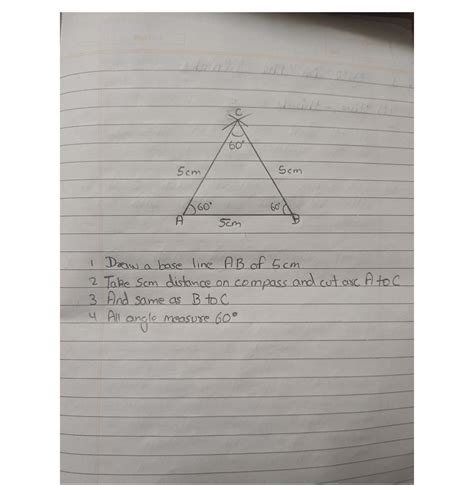 C
60°
5cm
5cm
60°
60°
A
5cm
B
1 Draw a base line AB of 5cm
2 Take 5cm distance on compass and cut arc A to C
3 And same as B to C
4 All angle measure 60°